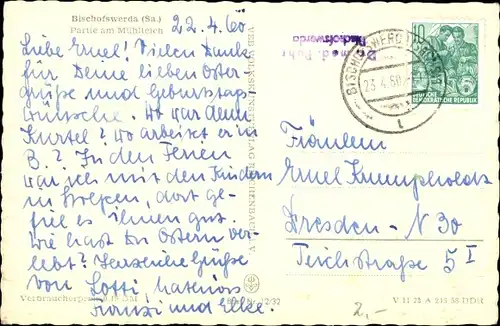 Bischofswerda (Sa.)
Partie am Mühlteich
22.4.60
Liebe Ernel! Vielen Dank
für Deine lieben Oster-
grüße und Geburtstags-
wünsche. Wo war denn
Kurtel? Wo arbeitet er in
B.? In den Ferien
war ich mit den Kindern
in Stolpen, dort ge-
fiel es ihnen gut.
Wie hast Du Ostern ver-
lebt? Herzliche Grüße
von Lotti,
und Elke.
Verbraucherpreis
12/32
Bischofswerda
BISCHOFSWERDA
23.4.60
10
DEUTSCHE
DEMOKRATISCHE REPUBLIK
Fräulein
Ernel Krumpholz
Dresden - N 30
Teichstraße 5 I
V 11 28 A
DDR
2,-